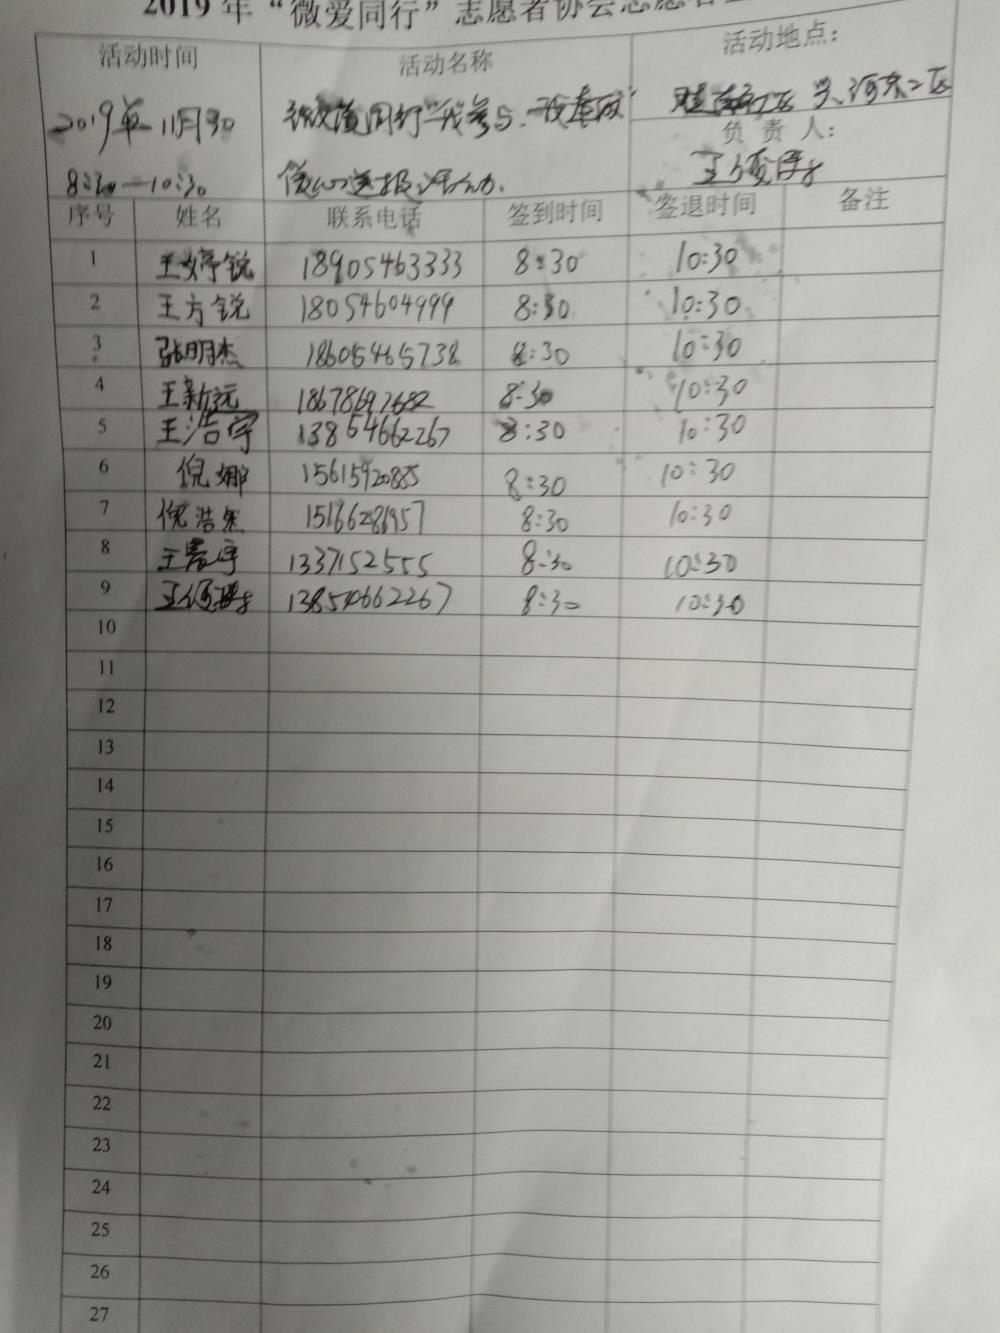 2019年“微爱同行”志愿者协会志愿者
活动时间 活动名称 活动地点:
2019年11月30
8:30—10:30
负责人:
序号 姓名 联系电话 签到时间 签退时间 备注
1 王婷锐 18905463333 8:30 10:30
2 王方锐 18054604999 8:30 10:30
3 张明杰 18605465738 8:30 10:30
4 王新远 18678697682 8:30 10:30
5 王浩宇 13854662267 8:30 10:30
6 倪娜 15615920885 8:30 10:30
7 倪浩然 8:30 10:30
8 1337152555 8:30 10:30
9 13854662267 8:30 10:30
10
11
12
13
14
15
16
17
18
19
20
21
22
23
24
25
26
27